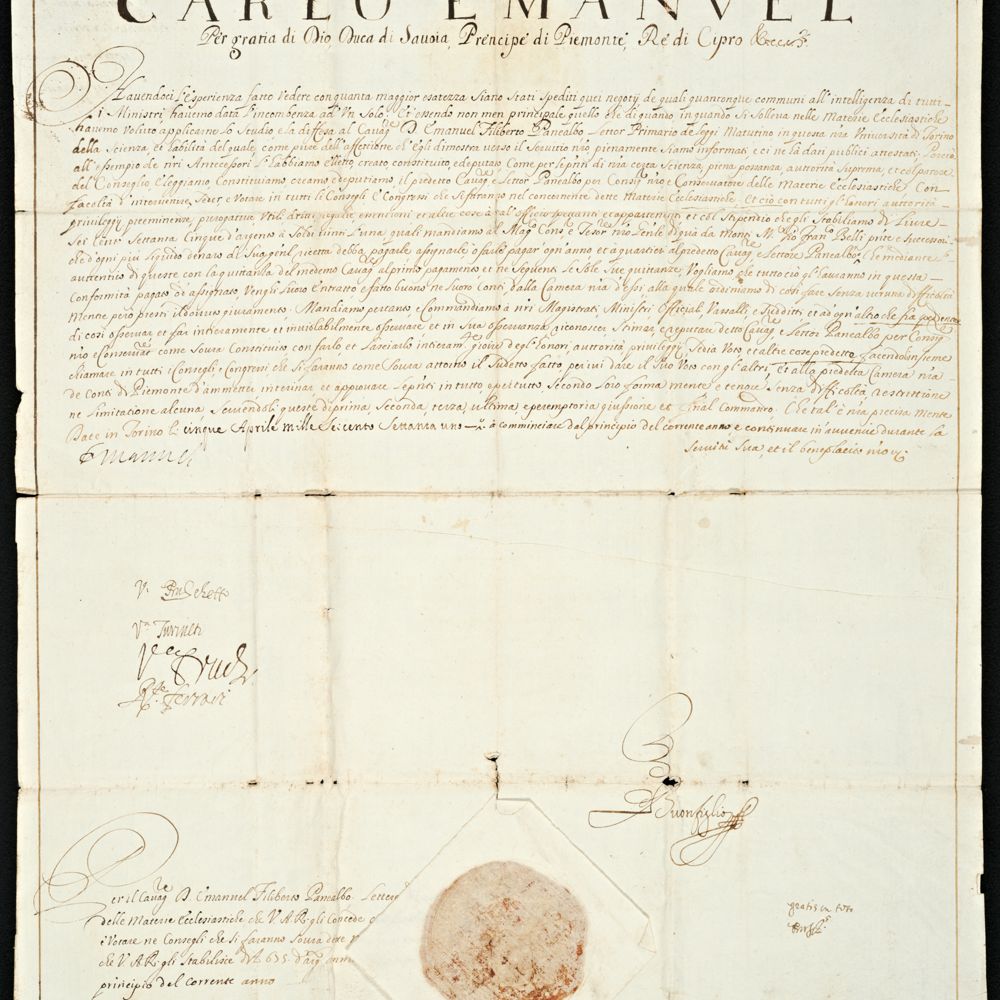 CARLO EMANVEL
Per gratia di Dio, Duca di Savoia, Prencipe di Piemonte, Rè di Cipro &c.
Havendoci l'esperienza fatto vedere con quanta maggior esatezza siano stati spediti quei negotij de quali quantonque communi all'intelligenza di tutti
i Ministri, havemo data l'incombenza ad un Solo; Et essendo non men principale quello che di quando in quando si solleva nelle Materie Ecclesiastiche
havemo voluto applicarne lo studio e la diffesa al Cavag.re D. Emanuel Filiberto Panealbo Lettor Primario de leggi Matutino in questa n̄ra Università di Torino
della Scienza, et habilità del quale, come pure dell'affettione ch'egli dimostra verso il Servitio n̄ro pienamente siamo informati, e ci ne là dati publici attestati. Perciò
all'essempio de n̄ri Antecessori l'habbiamo eletto, creato, constituito, e deputato Come per le p̄nti di n̄ra certa Scienza, piena possanza, autorità Suprema, et col parere
del Conseglio, l'eleggiamo, Constituiamo, creamo, e deputiamo, il predetto Cavag.re e Lettor Panealbo per Consig.re n̄ro e Conservatore delle Materie Ecclesiastiche Con
facoltà d'intervenire, Seder, e Votare in tutti li Consegli, e Congressi che si faranno nel concernente dette Materie Ecclesiastiche, et ciò con tutti gl'honori, autorità
privileggij, preeminenze, prerogative, Utili, dritti, regalie, esentioni, et altre cose à tal officio spettanti, et appartenenti, et col Stipendio che gli Stabiliamo di Livre
Sei Cento Settanta Cinque d'argento à Soldi vinti l'una quali mandiamo al Mag.co Cons.re e Tesor.re n̄ro g̅n̅le di quà da monti M. Gio Fran.co Belli p̄nte, e Successori
che d'ogni più liquido denaro di sua gen̅l ricetta debba pagarle assignarle, ò farle pagar ogn'anno et à quartieri al predetto Cavag.re e Lettore Panealbo, che mediante
autentico di queste con la quittanza del medemo Cavag.re al primo pagamento, et ne Seguenti le Sole Sue quittanze, Vogliamo che tutto ciò gl'havranno in questa
Conformità pagato, ò assignato, Vengli Suoro entratto, e fatto buono ne Suoro Conti dalla Camera n̄ra d'essi alla quale ordiniamo di così fare senza veruna difficoltà
mentre però presti il dovuto giuramento. Mandiamo pertanto, e Commandiamo à n̄ri Magistrati, Ministri, Officiali, Vassalli, e Sudditi et ad ogn'altro che fia spediente
di così osservar, et far intieramente, et inviolabilmente osservare, et in sua osservanza, riconoscer, Stimar, e reputar detto Cavag.re e Lettor Panealbo per Consig.re
n̄ro e Conservat.re come Sovra Constituito con farlo, et lasciarlo intieram.te gioire degl'honori, autorità, privileggij, Sedia, Voto, et altre cose predette, facendolo insieme
chiamare in tutti i Consegli, e Congressi che si faranno come Sovra attorno il Sudetto fatto per ivi dare il suo Voto con gl'altri, et alla predetta Camera n̄ra
de Conti di Piemonte d'ammetter, interinar, et approvare le p̄nti in tutto e per tutto Secondo loro forma mente, e tenore, Senza difficoltà, restrittione
ne limitatione alcuna, Servendoli queste di prima, Seconda, terza, ultima, e peremptoria giussione, et final Commando. Che tal'è n̄ra precisa Mente
Date in Torino li cinque Aprile mille Seicento Settanta uno à cominciare dal principio del corrente anno e continuare in avvenire durante la
servitù sua, et il beneplacito n̄ro
Emanuel
V. Buschetto
V.a Turineti
V.a Truchi
R.ta Ferrari
Buonfiglio
Per il Cavag.re D. Emanuel Filiberto Panealbo Lettor
delle Materie Ecclesiastiche che V. A. R. gli Concede
e Votare ne Consegli che si faranno Sovra dette
che V. A. R. gli Stabilisce di £ 675. d'arg.
principio del Corrente anno
gratis in toto